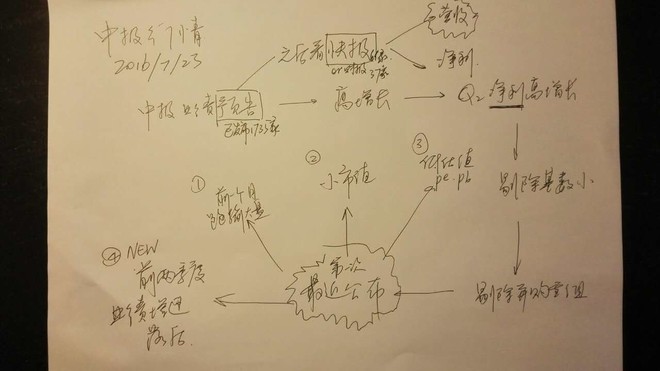 中报行情
2016/7/23
之后看快报
营收
净利
中报业绩预告
已发布1733家
高增长
Q2 净利高增长
剔除基数小
剔除并购重组
第一次
最近公布
①
前一个月
跑输大盘
②
小市值
③
低估值
pe.pb
④ NEW
前两季度
业绩增速
落后